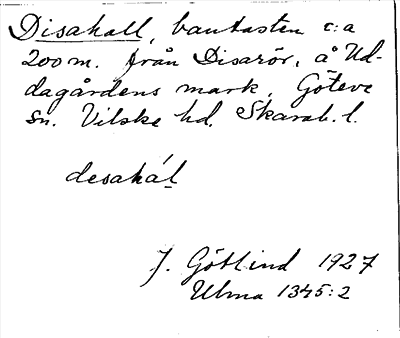 Disahall, bautasten c:a
200 m. från Disarör, å Ud-
dagårdens mark, Göteve
sn. Vilske hd. Skarab. l.
desahál
J. Götlind 1927
Ulma 1345:2